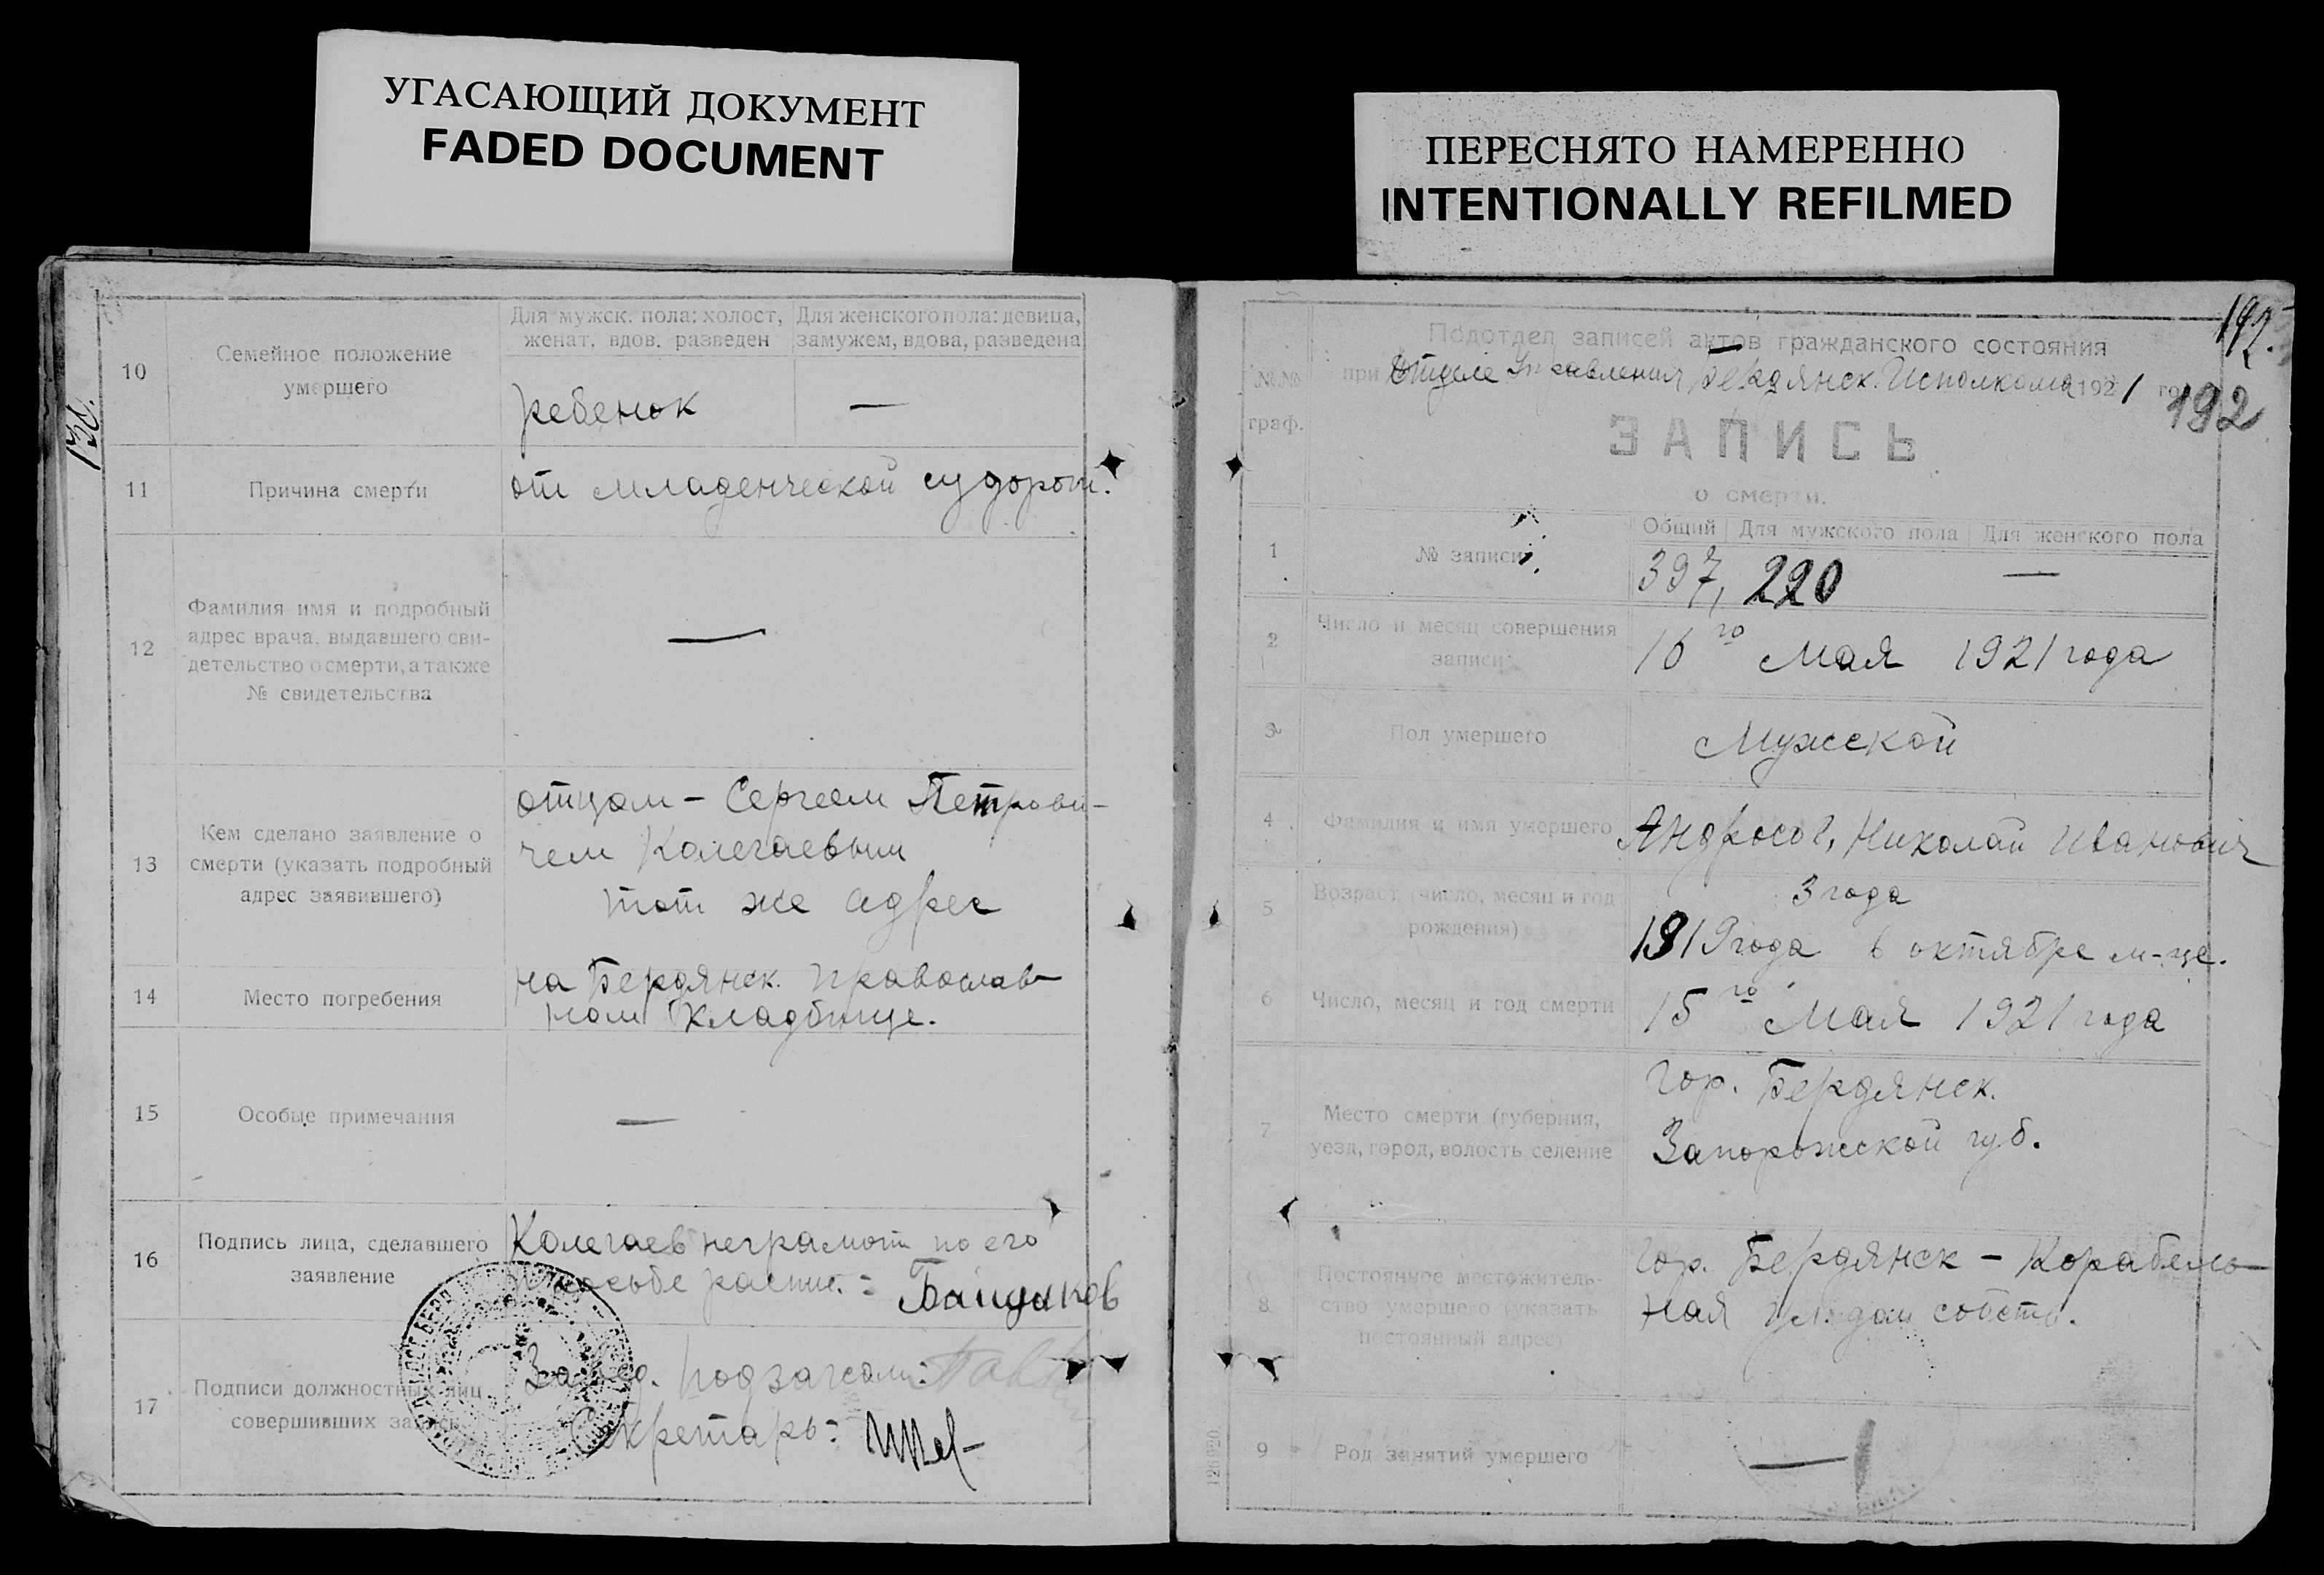 УГАСАЮЩИЙ ДОКУМЕНТ
FADED DOCUMENT
ПЕРЕСНЯТО НАМЕРЕННО
INTENTIONALLY REFILMED
10
Семейное положение
умершего
Для мужск. пола: холост,
женат, вдов, разведен
Для женского пола: девица,
замужем, вдова, разведена
ребенок
—
11
Причина смерти
от младенческой судороги.
12
Фамилия имя и подробный
адрес врача, выдавшего сви-
детельство о смерти, а также
№ свидетельства
—
13
Кем сделано заявление о
смерти (указать подробный
адрес заявившего)
отцом - Сергеем Петрови-
чем Колегаевым
тот же адрес
14
Место погребения
на Бердянск. православ-
ном кладбище.
15
Особые примечания
—
16
Подпись лица, сделавшего
заявление
Колегаев неграмотн по его
просьбе распис. =
17
Подписи должностных лиц
совершивших запись
Завед. подзагсом:
Секретарь:
192.
192
№№
граф.
Подотдел записей актов гражданского состояния
при Отделе Управления Бердянск. Исполкома 1921 го
ЗАПИСЬ
о смерти.
1
№ записи
Общий
Для мужского пола
Для женского пола
397,
220
—
2
Число и месяц совершения
записи
16го Мая 1921 года
3
Пол умершего
Мужской
4
Фамилия и имя умершего
Андросов, Николай Иванович
5
Возраст (число, месяц и год
рождения)
3 года
1919 года в октябре м-це.
6
Число, месяц и год смерти
15го Мая 1921 года
7
Место смерти (губерния,
уезд, город, волость, селение
Гор. Бердянск.
Запорожской губ.
8
Постоянное местожитель-
ство умершего (указать
постоянный адрес)
Гор. Бердянск - Корабель-
ная ул. дом собств.
9
Род занятий умершего
—